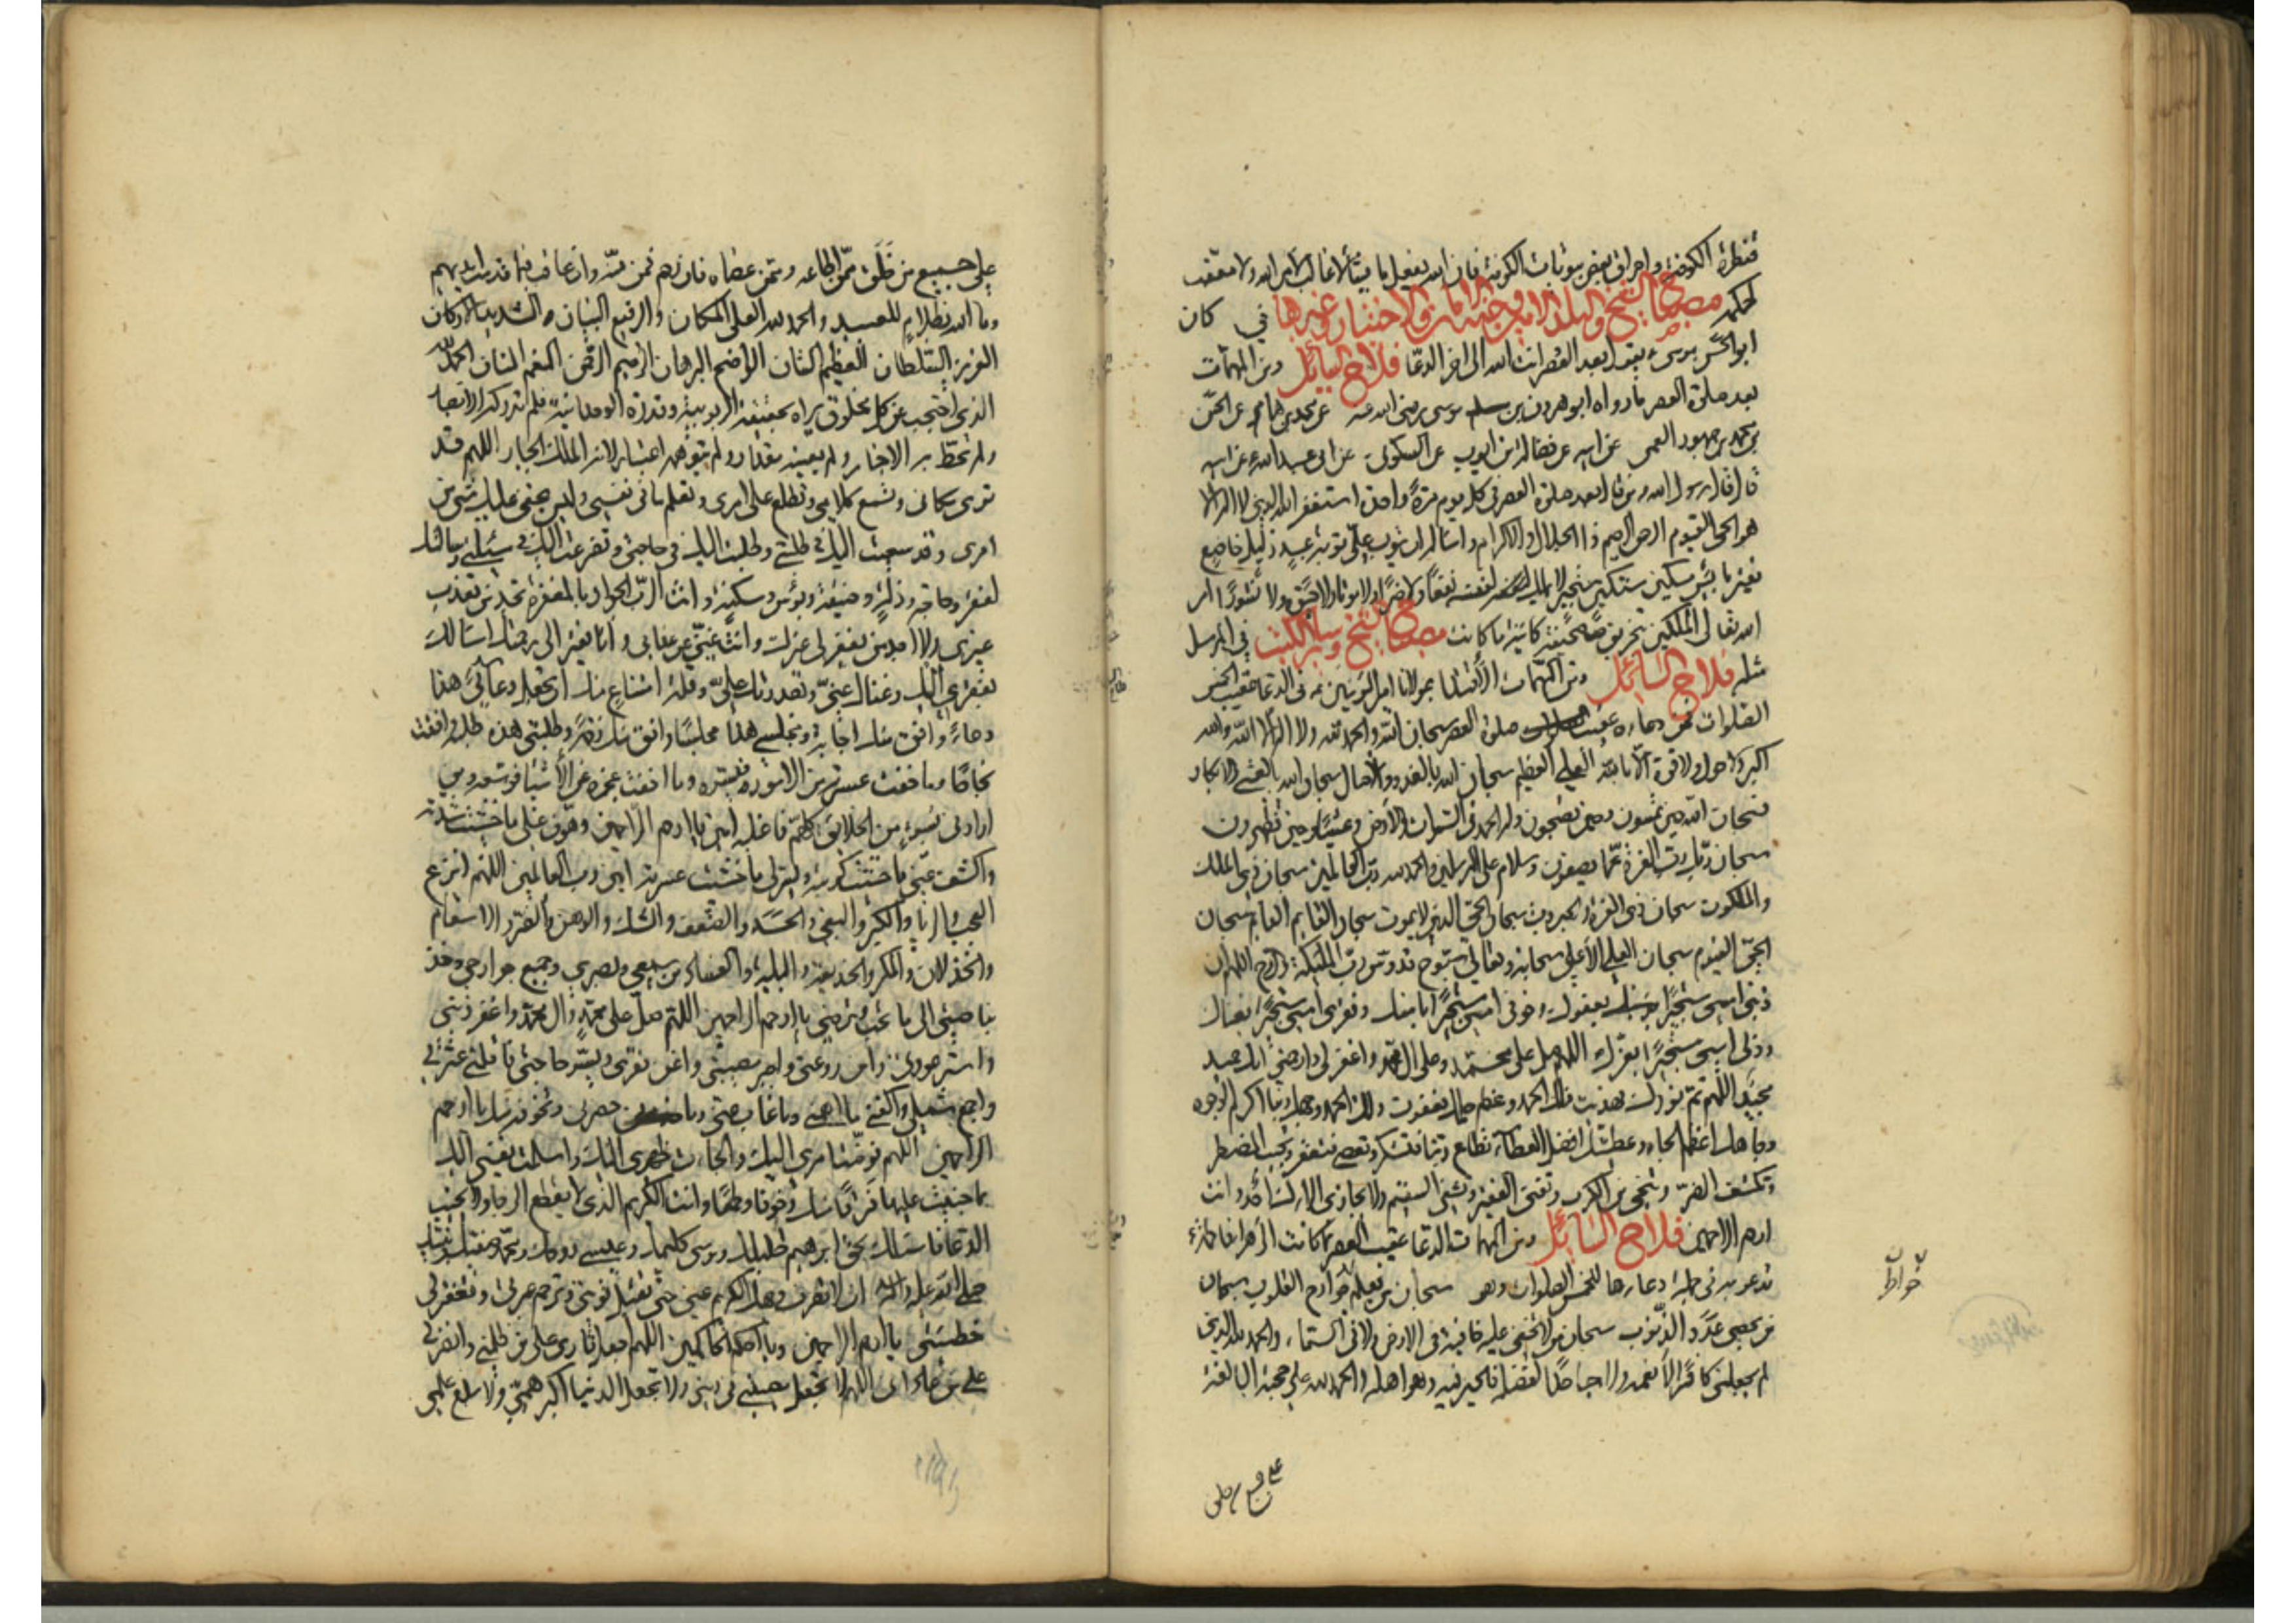 قنطرة الكوفة واحراق بعض بيوتات الكوفة فان الله يفعل ما يشآء لا غالب لامر الله ولا معقب
لحكمه مصباح الشيخ والبلد الامين وجنة الامان والاختيار وغيرها في كان
ابو الحسن موسى ع يقول بعد العصر انت الله الى اخر الدعا فلاح السائل ومن المهمات
بعد صلوة العصر ما رواه ابو هرون بن موسى رضى الله عنه عن محمد بن همام عن الحسن
بن محمد بن جمهور العمى عن ابيه عن فضالة بن ايوب عن السكونى عن ابى عبد الله ع عن ابيه
قال قال رسول الله من قال بعد صلوة العصر فى كل يوم مرة واحدة استغفر الله الذى لا اله الا
هو الحى القيوم الرحمن الرحيم ذا الجلال والاكرام واساله ان يتوب علىّ توبة عبد ذليل خاضع
فقير بائس مسكين مستكين مستجير لا يملك لنفسه نفعًا ولا ضرًا ولا موتا ولا حيوة ولا نشورًا امر
الله تعالى الملكين بتخريق صحيفته كائنة ما كانت مصباح الشيخ وسائر الكتب فى المرسل
مثله فلاح السائل ومن المهمات الاقتدا بمولانا امير المؤمنين ع فى الدعا عقيب الخمس
الصلوات فمن دعاءه عقيب صلوة العصر سبحان الله والحمد لله ولا اله الا الله والله
اكبر ولا حول ولا قوة الا بالله العلى العظيم سبحان الله بالغدو والاصال سبحان الله بالعشى والابكار
فسبحان الله حين تمسون وحين تصبحون وله الحمد فى السموات والارض وعشيًا وحين تظهرون
سبحان ربك رب العزة عما يصفون وسلام على المرسلين والحمد لله رب العالمين سبحان ذى الملك
والملكوت سبحان ذى العزة والجبروت سبحان الحى الذى لا يموت سبحان القائم الدائم سبحان
الحى القيوم سبحان العلى الاعلى سبحانه وتعالى سبوح قدوس رب الملئكة والروح اللهم ان
ذنبى امسى مستجيرًا بعفوك وخوفى امسى مستجيرًا بامنك وفقرى امسى مستجيرًا بغناك
وذلى امسى مستجيرًا بعزك اللهم صل على محمد وعلى ال محمد واغفر لى وارحمنى انك حميد
مجيد اللهم تم نورك فهديت فلك الحمد وعظم حلمك فعفوت فلك الحمد وجهك ربنا اكرم الوجوه
وجاهك اعظم الجاه وعطيتك افضل العطآء تطاع ربنا فتشكر وتعصى فتغفر وتجيب المضطر
وتكشف الضر وتنجى من الكرب وتغنى الفقير وتشفى السقيم ولا يجازى الاءك احد وانت
ارحم الراحمين فلاح السائل ومن المهمات الدعا عقيب العصر مما كانت الزهرا فاطمة ع
تدعو به فى جملة دعاءها للخمس الصلوات وهو سبحان من يعلم جوارح القلوب سبحان
من يحصى عدد الذنوب سبحان من لا تخفى عليه خافية فى الارض ولا فى السماء والحمد لله الذى
لم يجعلنى كافرًا لانعمه ولا جاحدًا لفضله فالخير فيه وهو اهله والحمد لله على حجته البالغة
على جميع من خلق ممن اطاعه وممن عصاه فان رحم فمن منّه وان عاقب فبما قدمت ايديهم
وما الله بظلام للعبيد والحمد لله العلى المكان والرفيع البنيان الشديد الاركان
العزيز السلطان العظيم الشان الواضح البرهان الرحيم الرحمن المنعم المنان الحمد لله
الذى احتجب عن كل مخلوق يراه بحقيقة الربوبية وقدرة الوحدانية فلم تدركه الابصار
ولم تحط به الاخبار ولم يعينه مقدار ولم يتوهمه اعتبار لانه الملك الجبار اللهم قد
ترى مكانى وتسمع كلامى وتطلع على امرى وتعلم ما فى نفسى وليس يخفى عليك شئ من
امرى وقد سعيت اليك فى طلبتى وطلبت اليك فى حاجتى وتضرعت اليك فى مسئلتى وسالتك
لفقر وحاجة وذلة وضيقة وبؤس ومسكنة وانت الرب الجواد بالمغفرة تجد من تعذب
غيرى ولا اجد من يغفر لى غيرك وانت غنى عن عذابى وانا فقير الى رحمتك اسالك
بفقرى اليك وغناك عنى وبقدرتك علىّ وقلة امتناعى منك ان تجعل دعائى هذا
دعاءً وافق منك اجابة ومجلسى هذا مجلسًا وافق منك رحمة وطلبتى هذه طلبة وافقت
نجاحًا وما خفت عسرته من الامور فيسره وما خفت عجزه من الاشيا فوسعه ومن
ارادنى بسوء من الخلائق كلهم فاغلبه امين يا ارحم الراحمين وهون على ما خشيت شدته
واكشف عنى ما خشيت كربته ويسر لى ما خشيت عسرته امين رب العالمين اللهم انزع
العجب والريا والكبر والبغى والحسد والضعف والشك والوهن والضر والاسقام
والخذلان والمكر والخديعة والبلية والفساد من سمعى وبصرى وجميع جوارحى وخذ
بناصيتى الى ما تحب وترضى يا ارحم الراحمين اللهم صل على محمد وال محمد واغفر ذنبى
واستر عورتى وامن روعتى واجبر مصيبتى واغن فقرى ويسر حاجتى واقلنى عثرتى
واجمع شملى واكفنى ما اهمنى وما غاب عنى وما حضرنى وما اتخوفه منك يا ارحم
الراحمين اللهم فوضت امرى اليك والجات ظهرى اليك واسلمت نفسى اليك
بما جنيت عليها فرقًا منك وخوفا وطمعًا وانت الكريم الذى لا يقطع الرجا ولا يخيب
الدعا فاسالك بحق ابرهيم خليلك وموسى كليمك وعيسى روحك ومحمد صفيك ونبيك
صلى الله عليه واله ان لا تصرف وجهك الكريم عنى حتى تقبل توبتى وترحم عبرتى وتغفر لى
خطيئتى يا ارحم الراحمين ويا احكم الحاكمين اللهم اجعل ثارى على من ظلمنى وانصرنى
على من عادانى اللهم لا تجعل مصيبتى فى دينى ولا تجعل الدنيا اكبر همى ولا مبلغ علمى